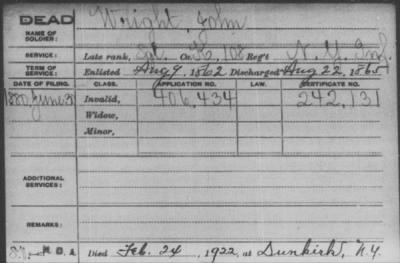 DEAD
NAME OF SOLDIER: Wright, John
SERVICE: Late rank, Co. K, 108 Reg't N. Y. Inf.
TERM OF SERVICE: Enlisted Aug 9, 1862 Discharged Aug 22, 1865
DATE OF FILING. CLASS. APPLICATION NO. LAW. CERTIFICATE NO.
1880, June Invalid, 406,434 242,131
Widow,
Minor,
ADDITIONAL SERVICES:
REMARKS:
Died Feb. 24, 1922, at Dunkirk, N.Y.